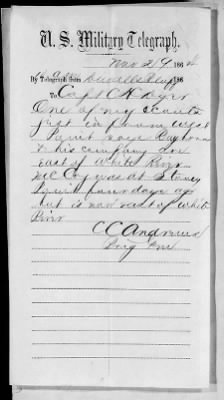 U. S. Military Telegraph.
Nov 29 1864
By Telegraph from Devalls Bluff 186
To Capt C H Dyer
One of my scouts
just in from West
Point says Rayburn
& his company are
east of White River
McCoy was at Stony
Point four days ago
but is now east of White
River
C C Andrews
Brig Gen